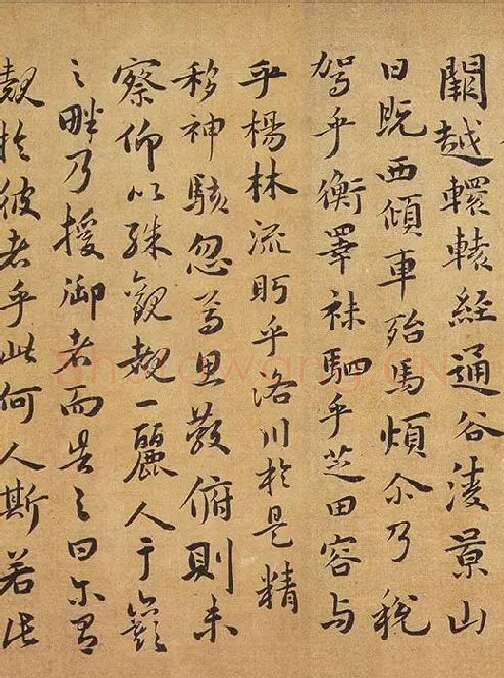 闕越轘轅經通谷淩景山
日既西傾車殆馬煩尒乃稅
駕乎衡睪秣駟乎芝田容与
乎楊林流眄乎洛川於是精
移神駭忽焉思散俯則未
察仰以殊觀覩一麗人于巖
之畔乃援御者而告之曰尔有
覿於彼者乎此何人斯若此